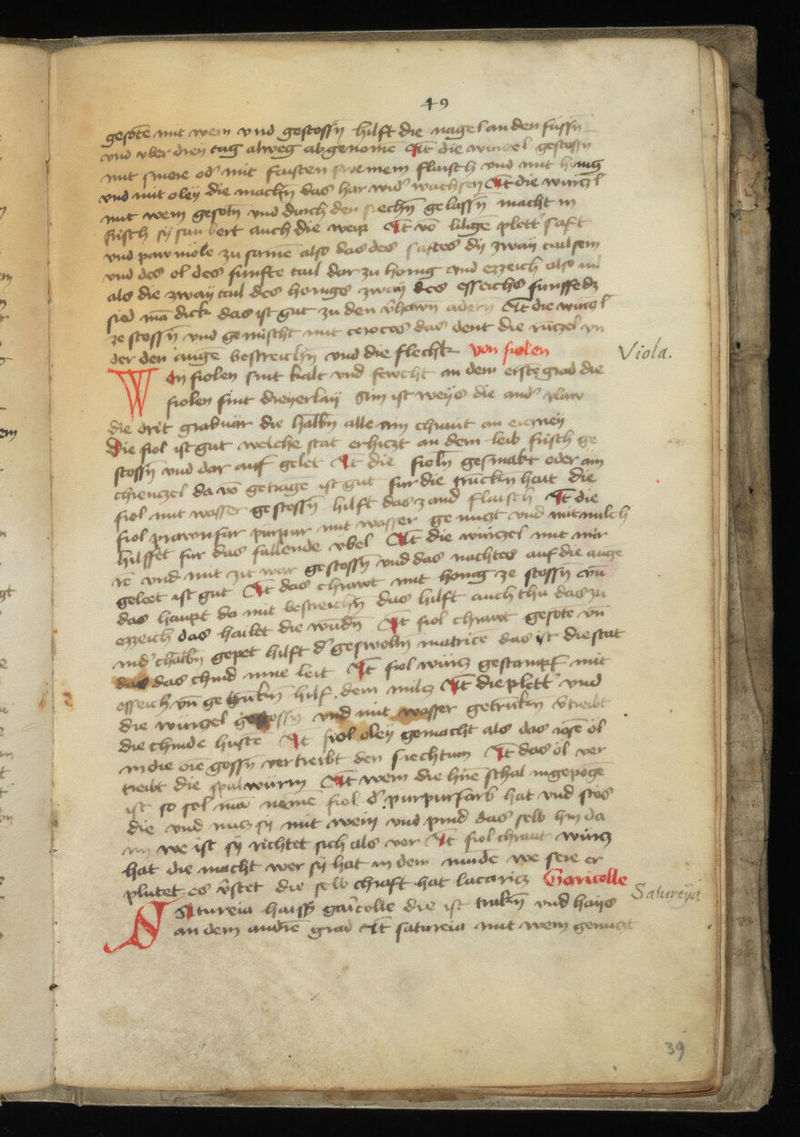 49
gesotē mit wein vnd gestossn̄ hilft die nagel an den fussn̄
vnd vber drein tag alweg abgenomē Jt̄ die wurczel gestossn̄
mit smere od' mit faisten sweinem flaisch vnd mit honig
vnd mit oley die machn̄ das har wid' wachsen Jt̄ die wurczl
mit wein gesotn̄ vnd durch den siechn̄ gelassn̄ macht in
frisch sy saubert auch die weip Jt̄ vō liligē plett saft
vnd pawmöle zu samē also das des saftes dy zway tail sein
vnd des öl des funfte tail dar zu honig vnd ezzeich also
als die zway tail des honigs zway des esseichs funffe
sied mā dick das ist gut zu den adern Jt̄ die wurczl
ze stossn̄ vnd gemischt mit cerotes das dent die runczel
der den auge bestreichn̄ vnd die flechk von fiolen
Viola.
Won fiolen sint kalt vnd fewcht an dem erstē grad die
fiolen sint dreyerlay aim ist weys die and' plaw
die drit grabuär die habn̄ alle ain chraut an ercney
Die fiol ist gut welche stat erhiczt an dem leib frisch ge
stossn̄ vnd dar auf geleit Jt̄ die fioln̄ gesmakt oder ain
chrenczel da vō getrage ist gut fur die truckn̄ hait die
fiol mit wasser gestossn̄ hilft das zand flaisch Jt̄ die
fiol prawnfar purpur mit wasser genuczt vnd mit milch
hilffet fur das fallende vbel Jt̄ die wurczel mit mir
re vnd mit gestossn̄ vnd das nachtes auf die auge
geleet ist gut Jt̄ das chrawt mit honig ze stossn̄ vn̄
das haupt da mit bestreichn̄ das hilft auch thu das zu
ezzeich das hailet die wudn̄ Jt̄ fiol chrawt gesote vn̄
gepet hilft d' geswoln̄ matrice das ist die stat
das das chind inne leit Jt̄ fiol wurcz gestampt mit
esseich vn̄ getrukn̄ hilf dem milcz Jt̄ die plett vnd
die wurczel gestossn̄ vnd mit wasser getrukn̄ v̄treibt
die chinde huste Jt̄ fiol oley gemacht als das rosē öl
in die ore gossn̄ vertreibt den siechtum Jt̄ das öl ver
treibt die spulwürm Jt̄ wem die hirē schal ingepogē
ist so sol mā nemē fiol d' purpurfarb hat vnd stos
die vnd nucz sy mit wein vnd pind das selb hin da
im we ist sy richtet sich als vor Jt̄ fiol chraut wurcz
hat die macht wer sy hat in dem munde we sere er
plutet es v̄stet die selb chraft hat lacaricz Garicolle
Satureya
Satureia haiss̄ gar̄colle die ist trukn̄ vnd hays
an dem andrē grad Jt̄ satureia mit wein genuczt
39